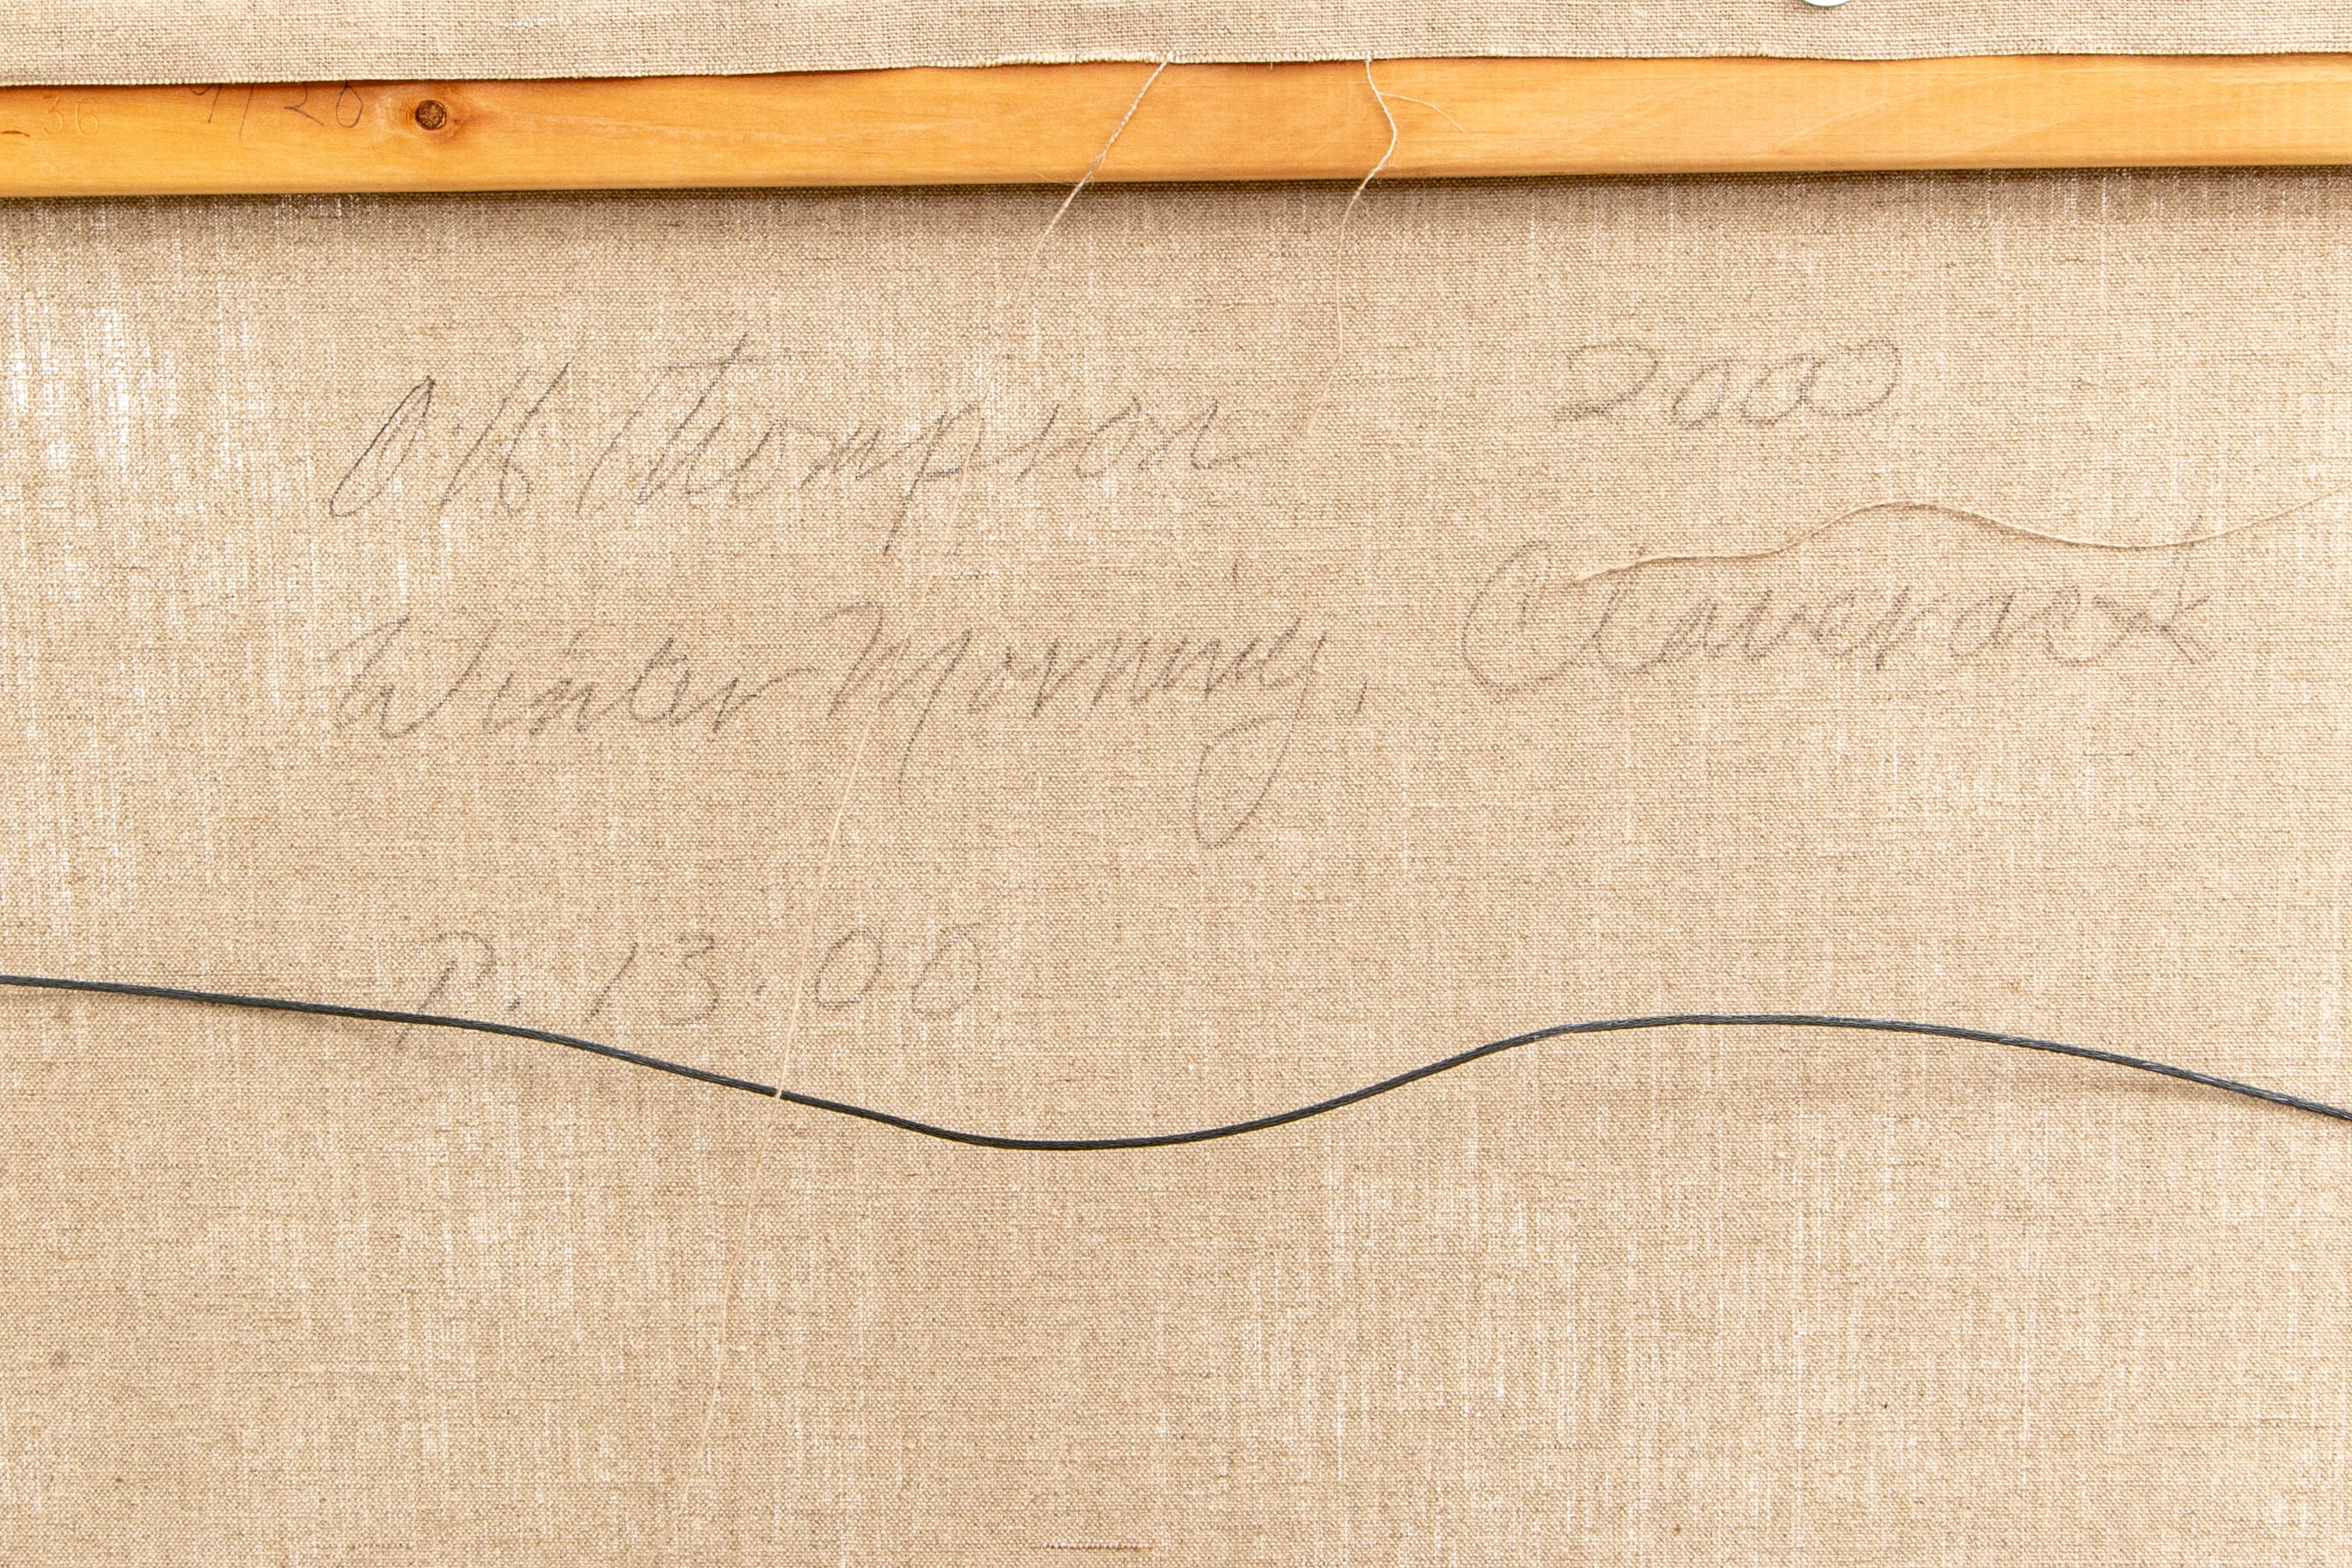 36 9/20
A H Thompson 2000
Winter Morning, Claverack
P. 13.00